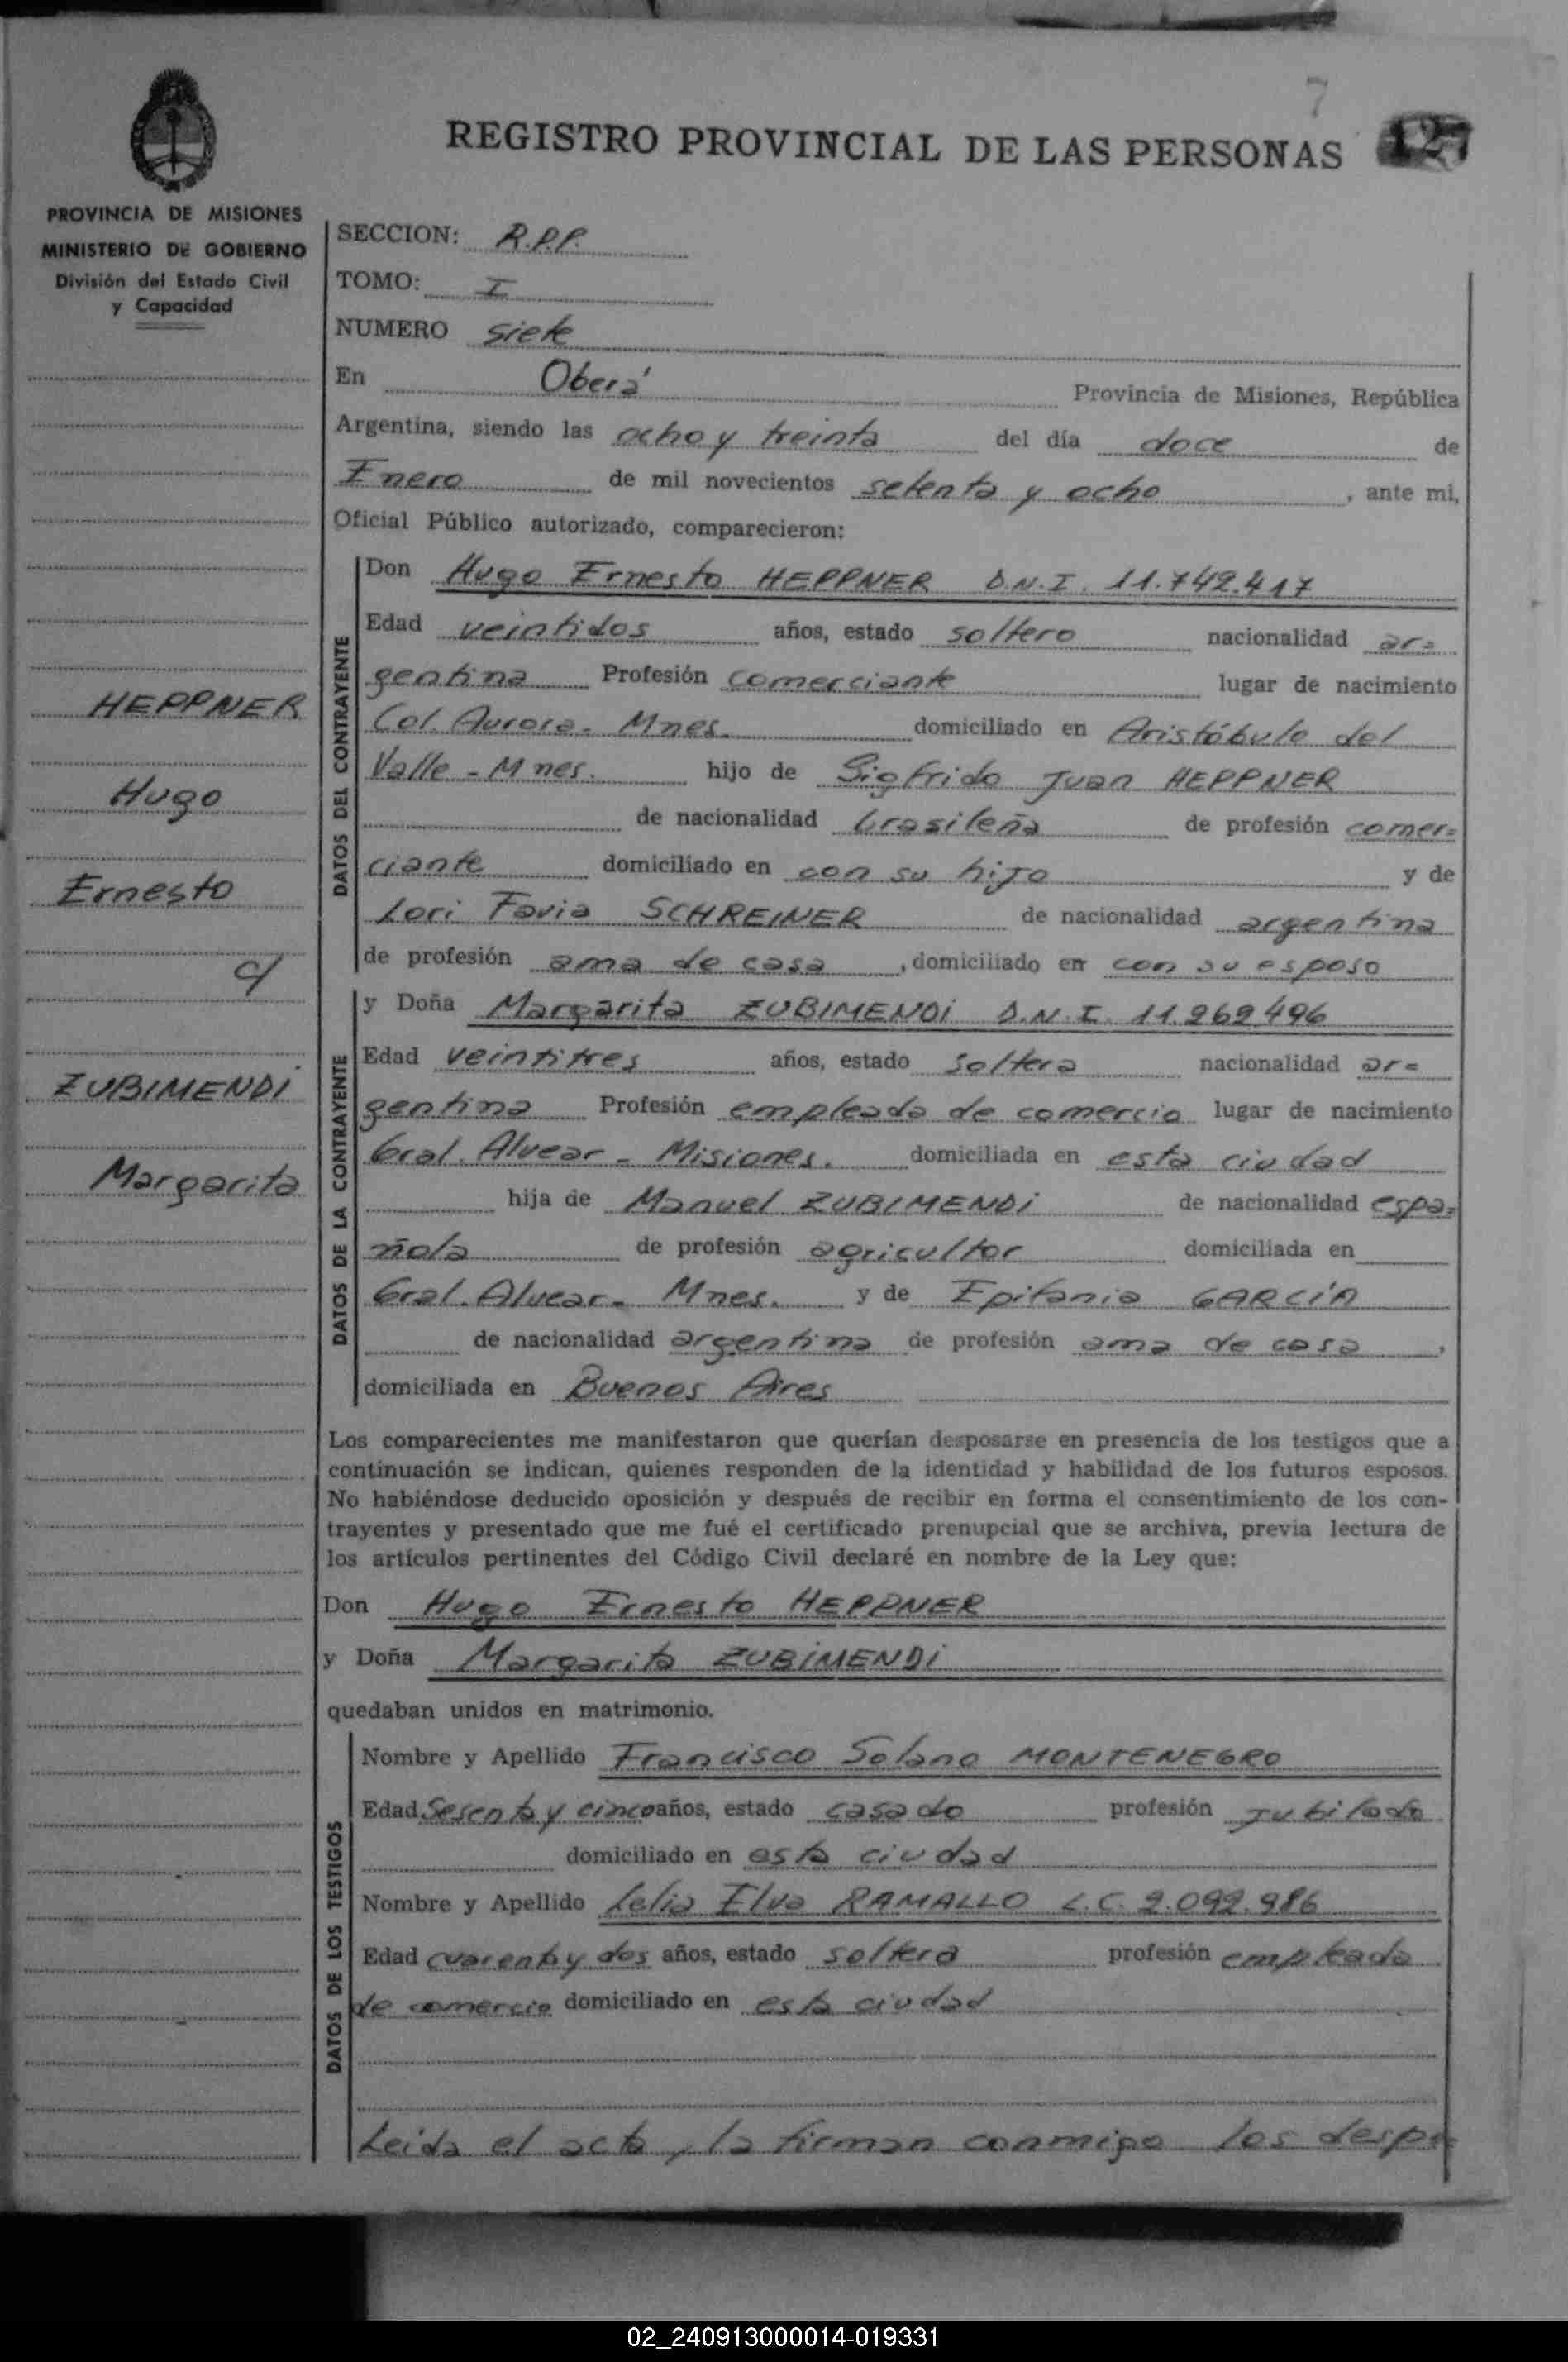 7
REGISTRO PROVINCIAL DE LAS PERSONAS 127
PROVINCIA DE MISIONES
MINISTERIO DE GOBIERNO
División del Estado Civil
y Capacidad
SECCION: R.P.P.
TOMO: I
NUMERO siete
En Oberá Provincia de Misiones, República
Argentina, siendo las ocho y treinta del día doce de
Enero de mil novecientos setenta y ocho, ante mi,
Oficial Público autorizado, comparecieron:
DATOS DEL CONTRAYENTE
Don Hugo Ernesto HEPPNER D.N.I. 11.742.417
Edad veintidos años, estado soltero nacionalidad ar=
gentina Profesión comerciante lugar de nacimiento
Col. Aurora- Mnes. domiciliado en Aristóbulo del
Valle - Mnes. hijo de Sigfrido Juan HEPPNER
de nacionalidad brasileña de profesión comer=
ciante domiciliado en con su hijo y de
Lori Favia SCHREINER de nacionalidad argentina
de profesión ama de casa, domiciliado en con su esposo
DATOS DE LA CONTRAYENTE
y Doña Margarita ZUBIMENDI D.N.I. 11.269.496
Edad veintitres años, estado soltera nacionalidad ar=
gentina Profesión empleada de comercio lugar de nacimiento
Gral. Alvear - Misiones. domiciliada en esta ciudad
hija de Manuel ZUBIMENDI de nacionalidad espa=
ñola de profesión agricultor domiciliada en
Gral. Alvear- Mnes. y de Epifania GARCÍA
de nacionalidad argentina de profesión ama de casa,
domiciliada en Buenos Aires
Los comparecientes me manifestaron que querían desposarse en presencia de los testigos que a
continuación se indican, quienes responden de la identidad y habilidad de los futuros esposos.
No habiéndose deducido oposición y después de recibir en forma el consentimiento de los con-
trayentes y presentado que me fué el certificado prenupcial que se archiva, previa lectura de
los artículos pertinentes del Código Civil declaré en nombre de la Ley que:
Don Hugo Ernesto HEPPNER
y Doña Margarita ZUBIMENDI
quedaban unidos en matrimonio.
DATOS DE LOS TESTIGOS
Nombre y Apellido Francisco Solano MONTENEGRO
Edad Sesenta y cinco años, estado casado profesión jubilado
domiciliado en esta ciudad
Nombre y Apellido Lelia Elva RAMALLO L.C. 2.092.986
Edad cuarenta y dos años, estado soltera profesión empleada
de comercio domiciliado en esta ciudad
Leida el acta, la firman conmigo los despo
HEPPNER
Hugo
Ernesto
c/
ZUBIMENDI
Margarita
02_240913000014-019331